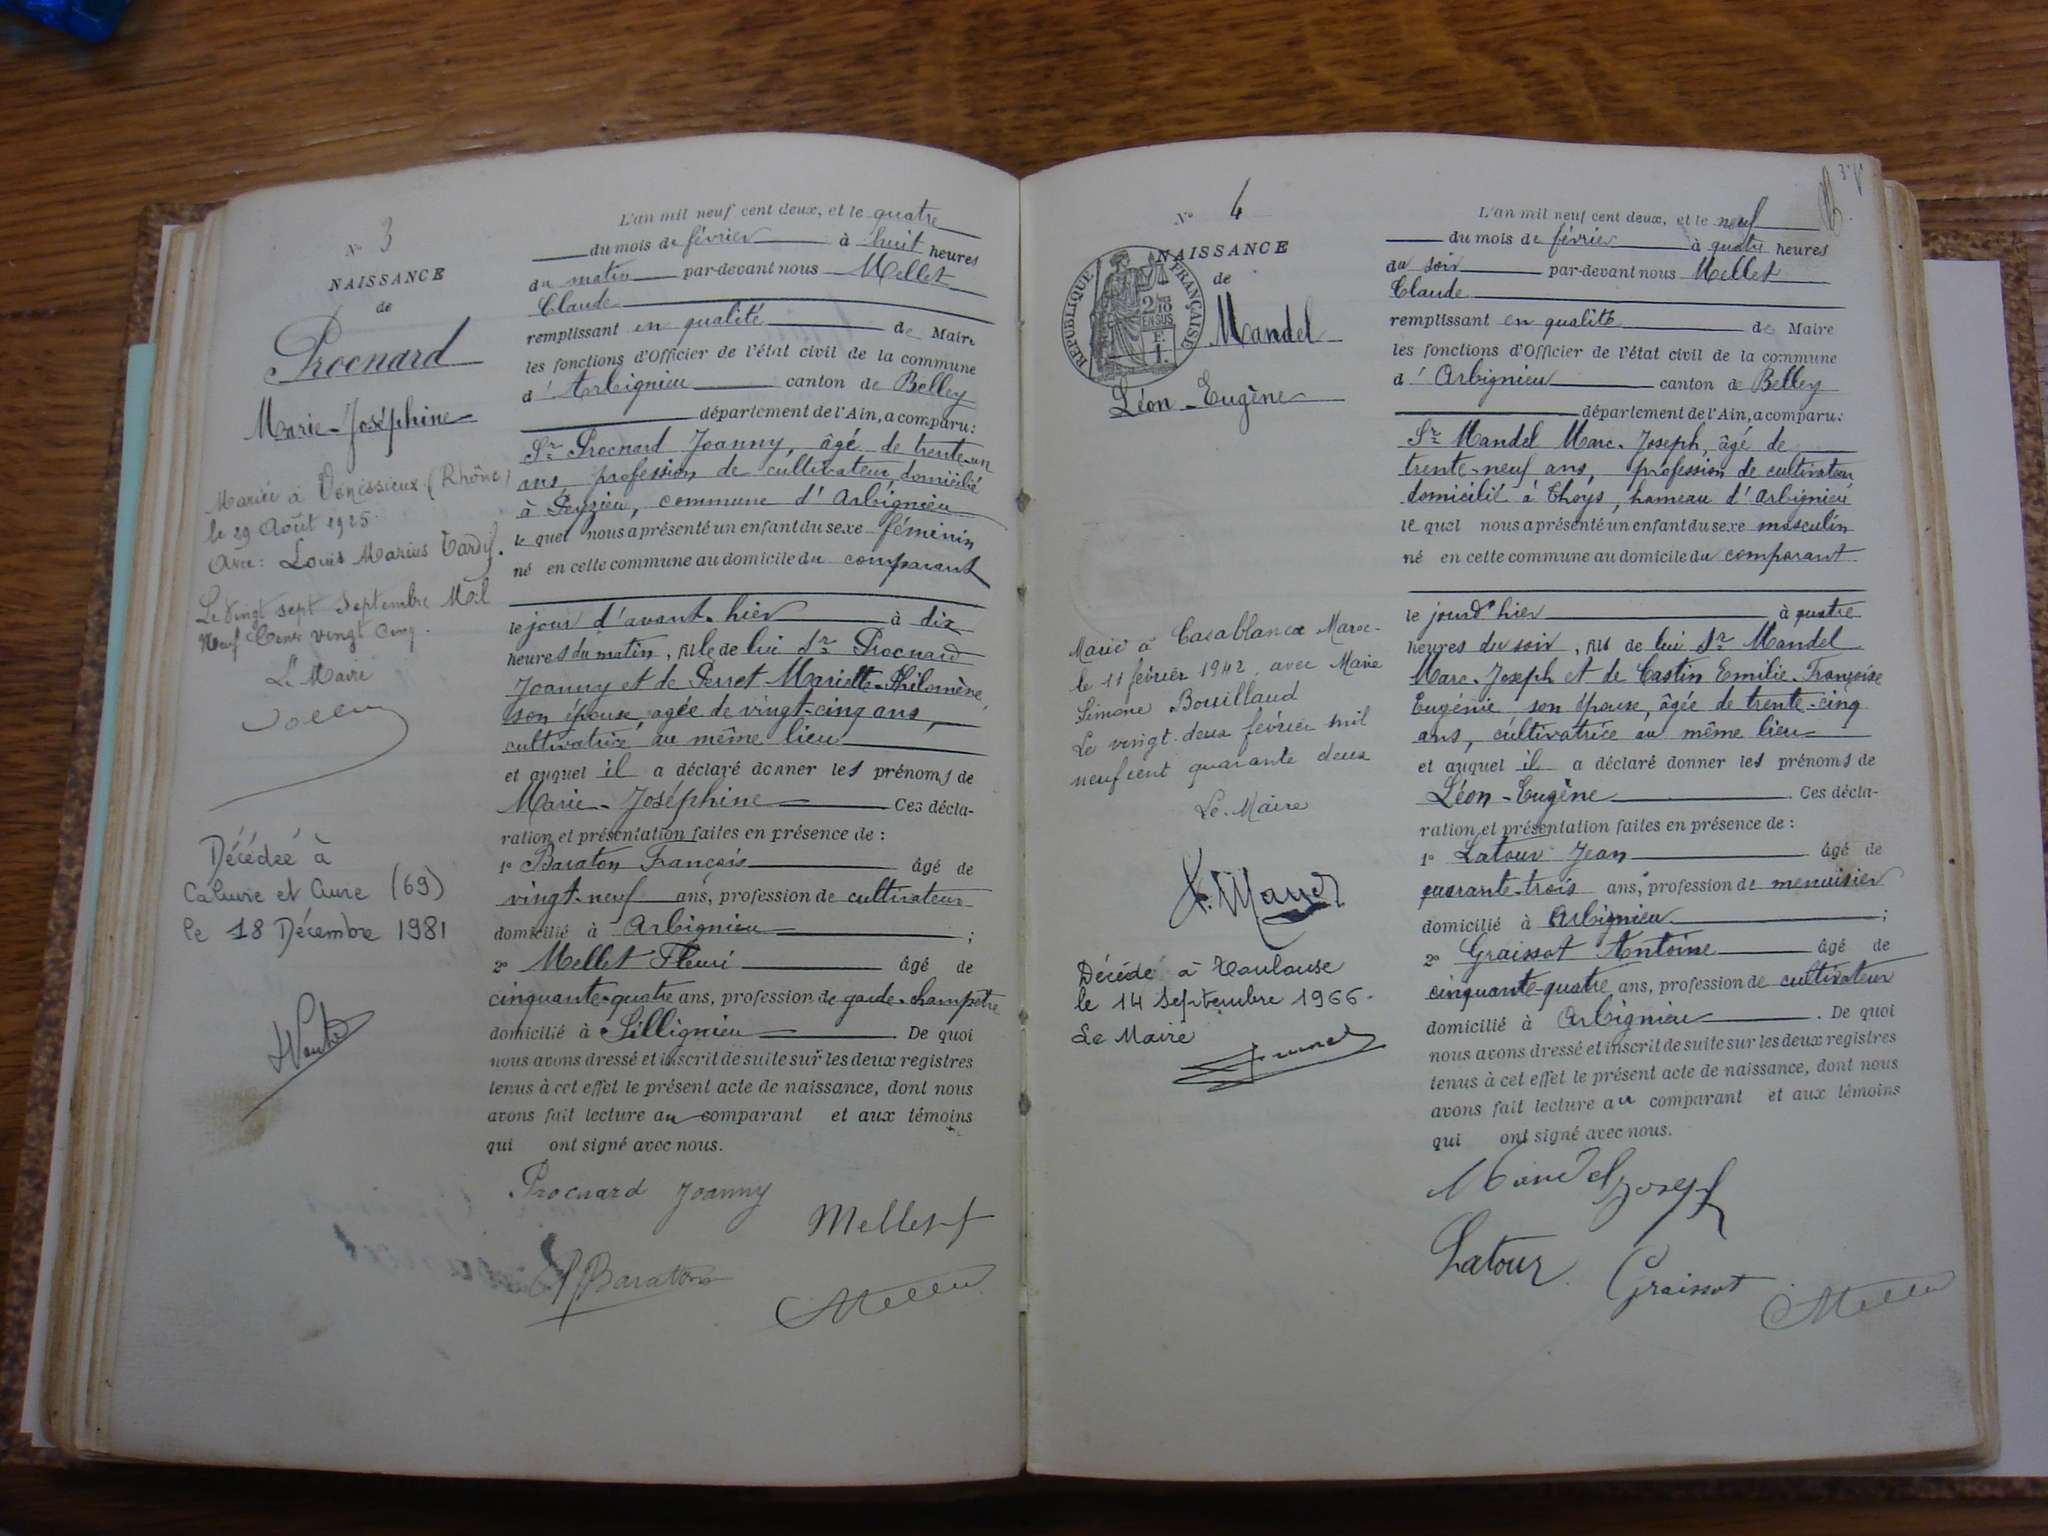 N° 3
NAISSANCE
de
Procnard
Marie-Joséphine
Mariée à Vénissieux (Rhône)
le 29 Août 1925
Avec: Louis Marius Tardy.
Le Vingt sept Septembre Mil
Neuf Cent vingt Cinq.
Le Maire
Décédée à
Caluire et Cuire (69)
le 18 Décembre 1981
L'an mil neuf cent deux, et le quatre
du mois de février à huit heures
du matin par-devant nous Mellet
Claude
remplissant en qualité de Maire
les fonctions d'Officier de l'état civil de la commune
d' Arbignieu canton de Belley
département de l'Ain, a comparu:
Sr Procnard Joanny, âgé de trente-un
ans, profession de cultivateur, domicilié
à Peyzieu, commune d'Arbignieu
le quel nous a présenté un enfant du sexe féminin
né en cette commune au domicile du comparant
le jour d'avant-hier à dix
heures du matin, fille de lui Sr Procnard
Joanny et de Perret Mariette-Philomène,
son épouse, agée de vingt-cinq ans,
cultivatrice au même lieu
et auquel il a déclaré donner les prénoms de
Marie-Joséphine Ces décla-
ration et présentation faites en présence de :
1° Baraton François âgé de
vingt-neuf ans, profession de cultivateur
domicilié à Arbignieu ;
2° Mellet Fleuri âgé de
cinquante-quatre ans, profession de garde-champêtre
domicilié à Sillignieu . De quoi
nous avons dressé et inscrit de suite sur les deux registres
tenus à cet effet le présent acte de naissance, dont nous
avons fait lecture au comparant et aux témoins
qui ont signé avec nous.
Procnard Joanny
Mellet f
Baraton
Mellet
N° 4
NAISSANCE
de
RÉPUBLIQUE FRANÇAISE
2/10 EN SUS
F.
1.
Mandel
Léon-Eugène
Marié à Casablanca Maroc-
le 11 février 1942, avec Marie
Simone Bouillaud
Le vingt-deux février mil
neuf cent quarante deux
Le Maire
Décédé à Toulouse
le 14 Septembre 1966.
Le Maire
L'an mil neuf cent deux, et le neuf
du mois de février à quatre heures
du soir par-devant nous Mellet
Claude
remplissant en qualité de Maire
les fonctions d'Officier de l'état civil de la commune
d' Arbignieu canton de Belley
département de l'Ain, a comparu:
Sr Mandel Marc-Joseph, âgé de
trente-neuf ans, profession de cultivateur
domicilié à Thoys, hameau d'Arbignieu
le quel nous a présenté un enfant du sexe masculin
né en cette commune au domicile du comparant
le jour d'hier à quatre
heures du soir, fils de lui Sr Mandel
Marc-Joseph et de Castin Emilie-Françoise
Eugénie son épouse, âgée de trente-cinq
ans, cultivatrice au même lieu
et auquel il a déclaré donner les prénoms de
Léon-Eugène . Ces décla-
ration et présentation faites en présence de :
1° Latour Jean âgé de
quarante-trois ans, profession de menuisier
domicilié à Arbignieu ;
2° Graissot Antoine âgé de
cinquante-quatre ans, profession de cultivateur
domicilié à Arbignieu . De quoi
nous avons dressé et inscrit de suite sur les deux registres
tenus à cet effet le présent acte de naissance, dont nous
avons fait lecture au comparant et aux témoins
qui ont signé avec nous.
Mandel Joseph
Latour Graissot
Mellet